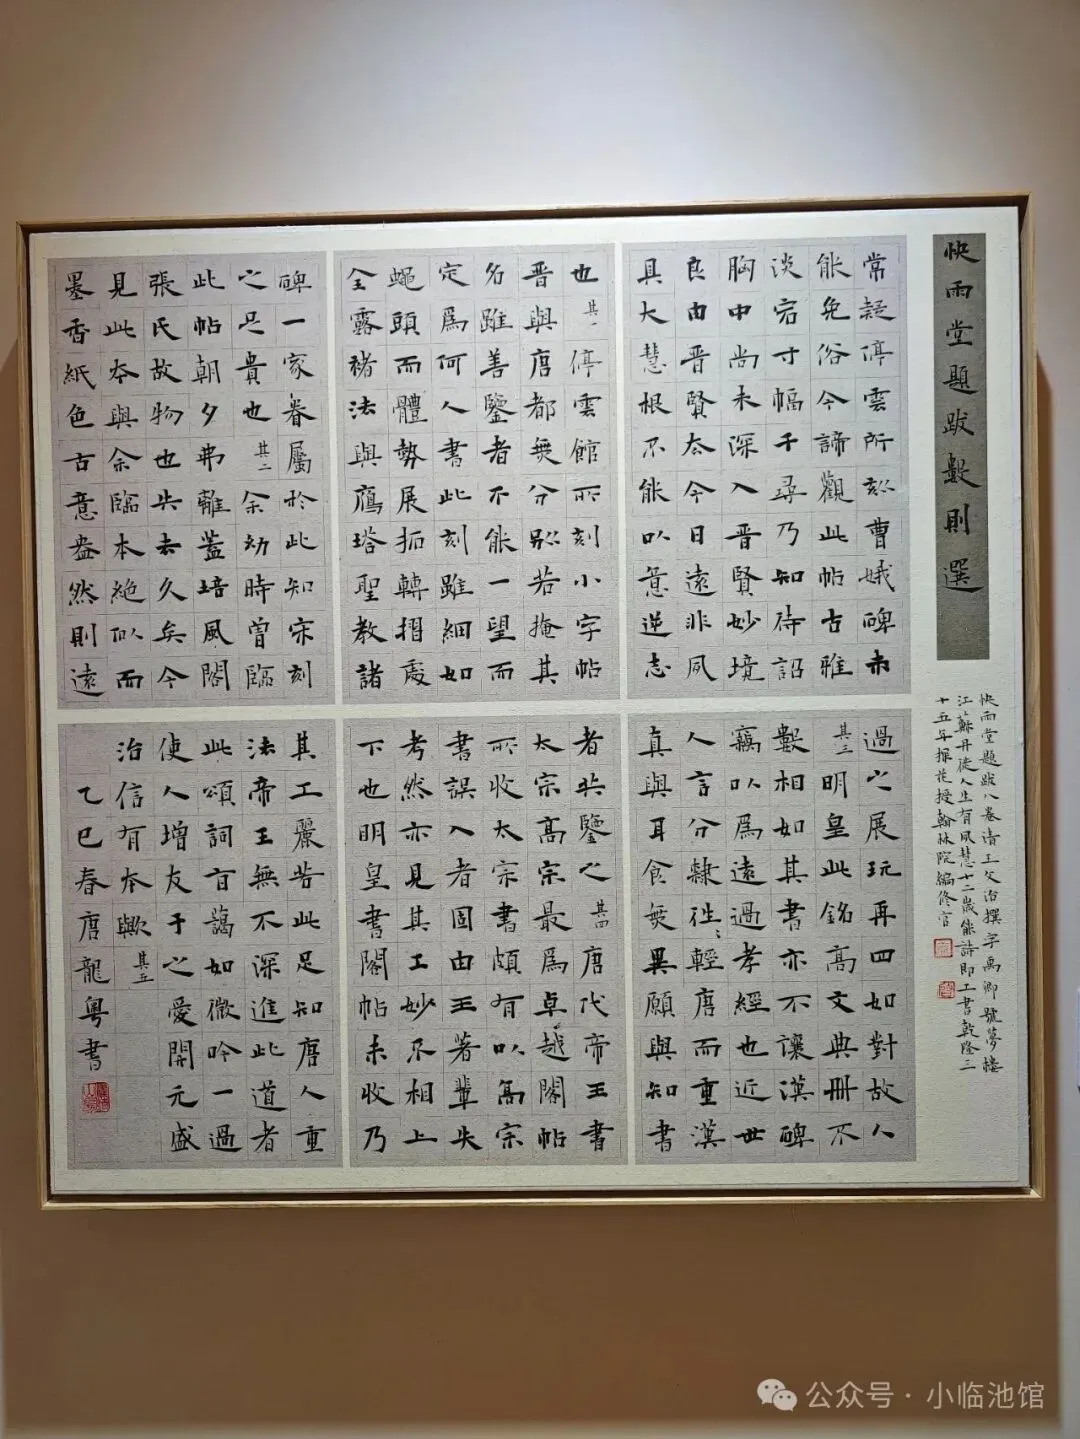 快雨堂題跋數則選
快雨堂題跋八卷清王文治撰字禹卿號夢樓
江蘇丹徒人生有夙慧十二歲能詩即工書乾隆三
十五年探花授翰林院編修官
常疑停雲所刻曹娥碑未
能免俗今諦觀此帖古雅
淡宕寸幅千尋乃知待詔
胸中尚未深入晉賢妙境
良由晉賢太今日遠非夙
具大慧根不能以意逆志
也其一停雲館所刻小字帖
晉與唐都無分別若掩其
名雖善鑒者不能一望而
定為何人書此刻雖細如
蠅頭而體勢展拓轉摺處
全露褚法與鴈塔聖教諸
碑一家眷屬於此知宋刻
之足貴也其二余幼時曾臨
此帖朝夕弗離蓋培風閣
張氏故物也失去久矣今
見此本與余臨本絕似而
墨香紙色古意盎然則遠
過之展玩再四如對故人
其三明皇此銘高文典冊不
數相如其書亦不讓漢碑
竊以為遠過孝經也近世
人言分隸往〻輕唐而重漢
真與耳食無異願與知書
者共鑒之其四唐代帝王書
太宗高宗最為卓越閣帖
所收太宗書頗有以高宗
書誤入者固由王著輩失
考然亦見其工妙不相上
下也明皇書閣帖未收乃
其工麗若此足知唐人重
法帝王無不深進此道者
此頌詞旨藹如微吟一過
使人增友于之愛開元盛
治信有本歟其五
乙巳春唐龍粵書
公众号·小临池馆